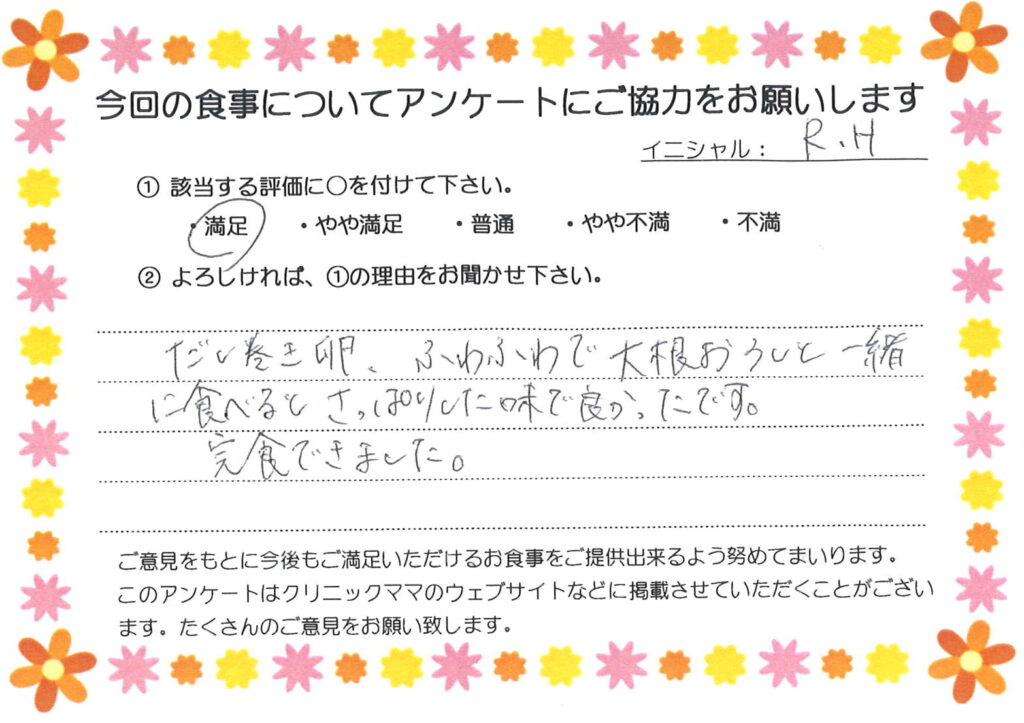 今回の食事についてアンケートにご協力をお願いします
イニシャル： R.H
① 該当する評価に○を付けて下さい。
・満足 ・やや満足 ・普通 ・やや不満 ・不満
② よろしければ、①の理由をお聞かせ下さい。
だし巻き卵、ふわふわで大根おろしと一緒
に食べるとさっぱりした味で良かったです。
完食できました。
ご意見をもとに今後もご満足いただけるお食事をご提供出来るよう努めてまいります。
このアンケートはクリニックママのウェブサイトなどに掲載させていただくことがござい
ます。たくさんのご意見をお願い致します。